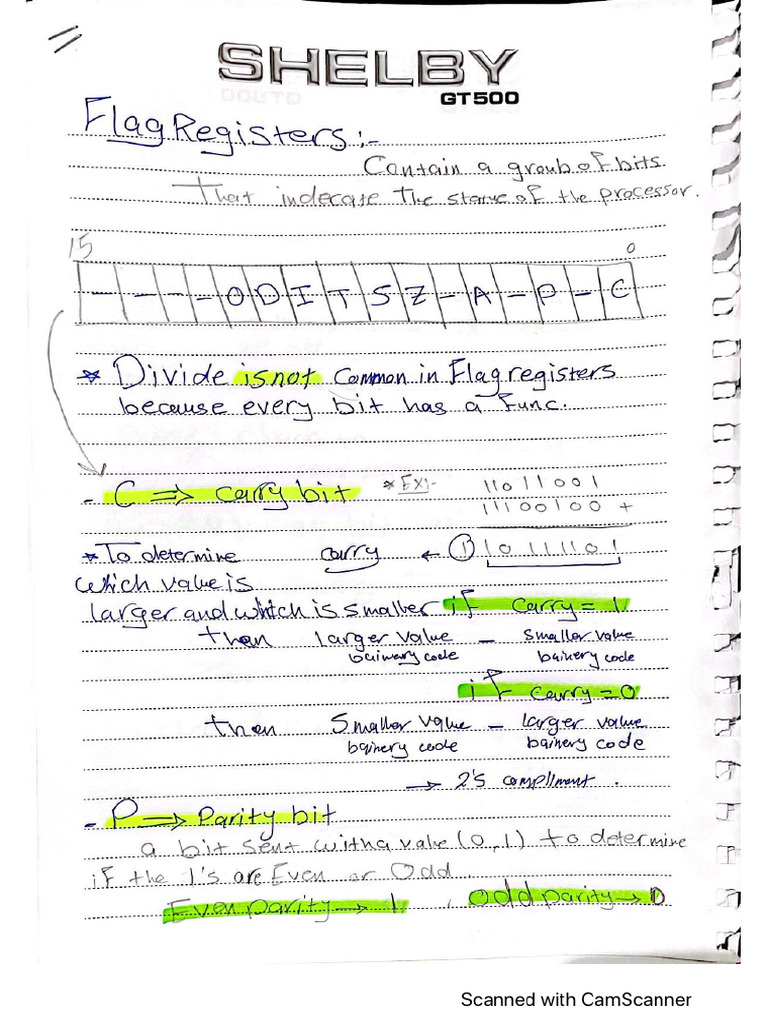 SHELBY
GT500
Flag Registers :-
Contain a groub of bits.
That indecate The starue of the processor.
15 0
- - - - O D I T S Z - A - P - C
* Divide is not common in Flag registers
because every bit has a func.
- C => carry bit * Ex:- 11011001
11100100 +
* To determine carry ← ① 10111101
which value is
larger and which is smaller if carry = 1
then larger value - smaller value
bainery code bainery code
if carry = 0
then Smaller value - larger value
bainery code bainery code
→ 2's compliment .
- P => Parity bit
a bit sent with a value (0,1) to determine
if the 1's are Even or Odd.
Even parity → 1 , Odd parity → 0
Scanned with CamScanner